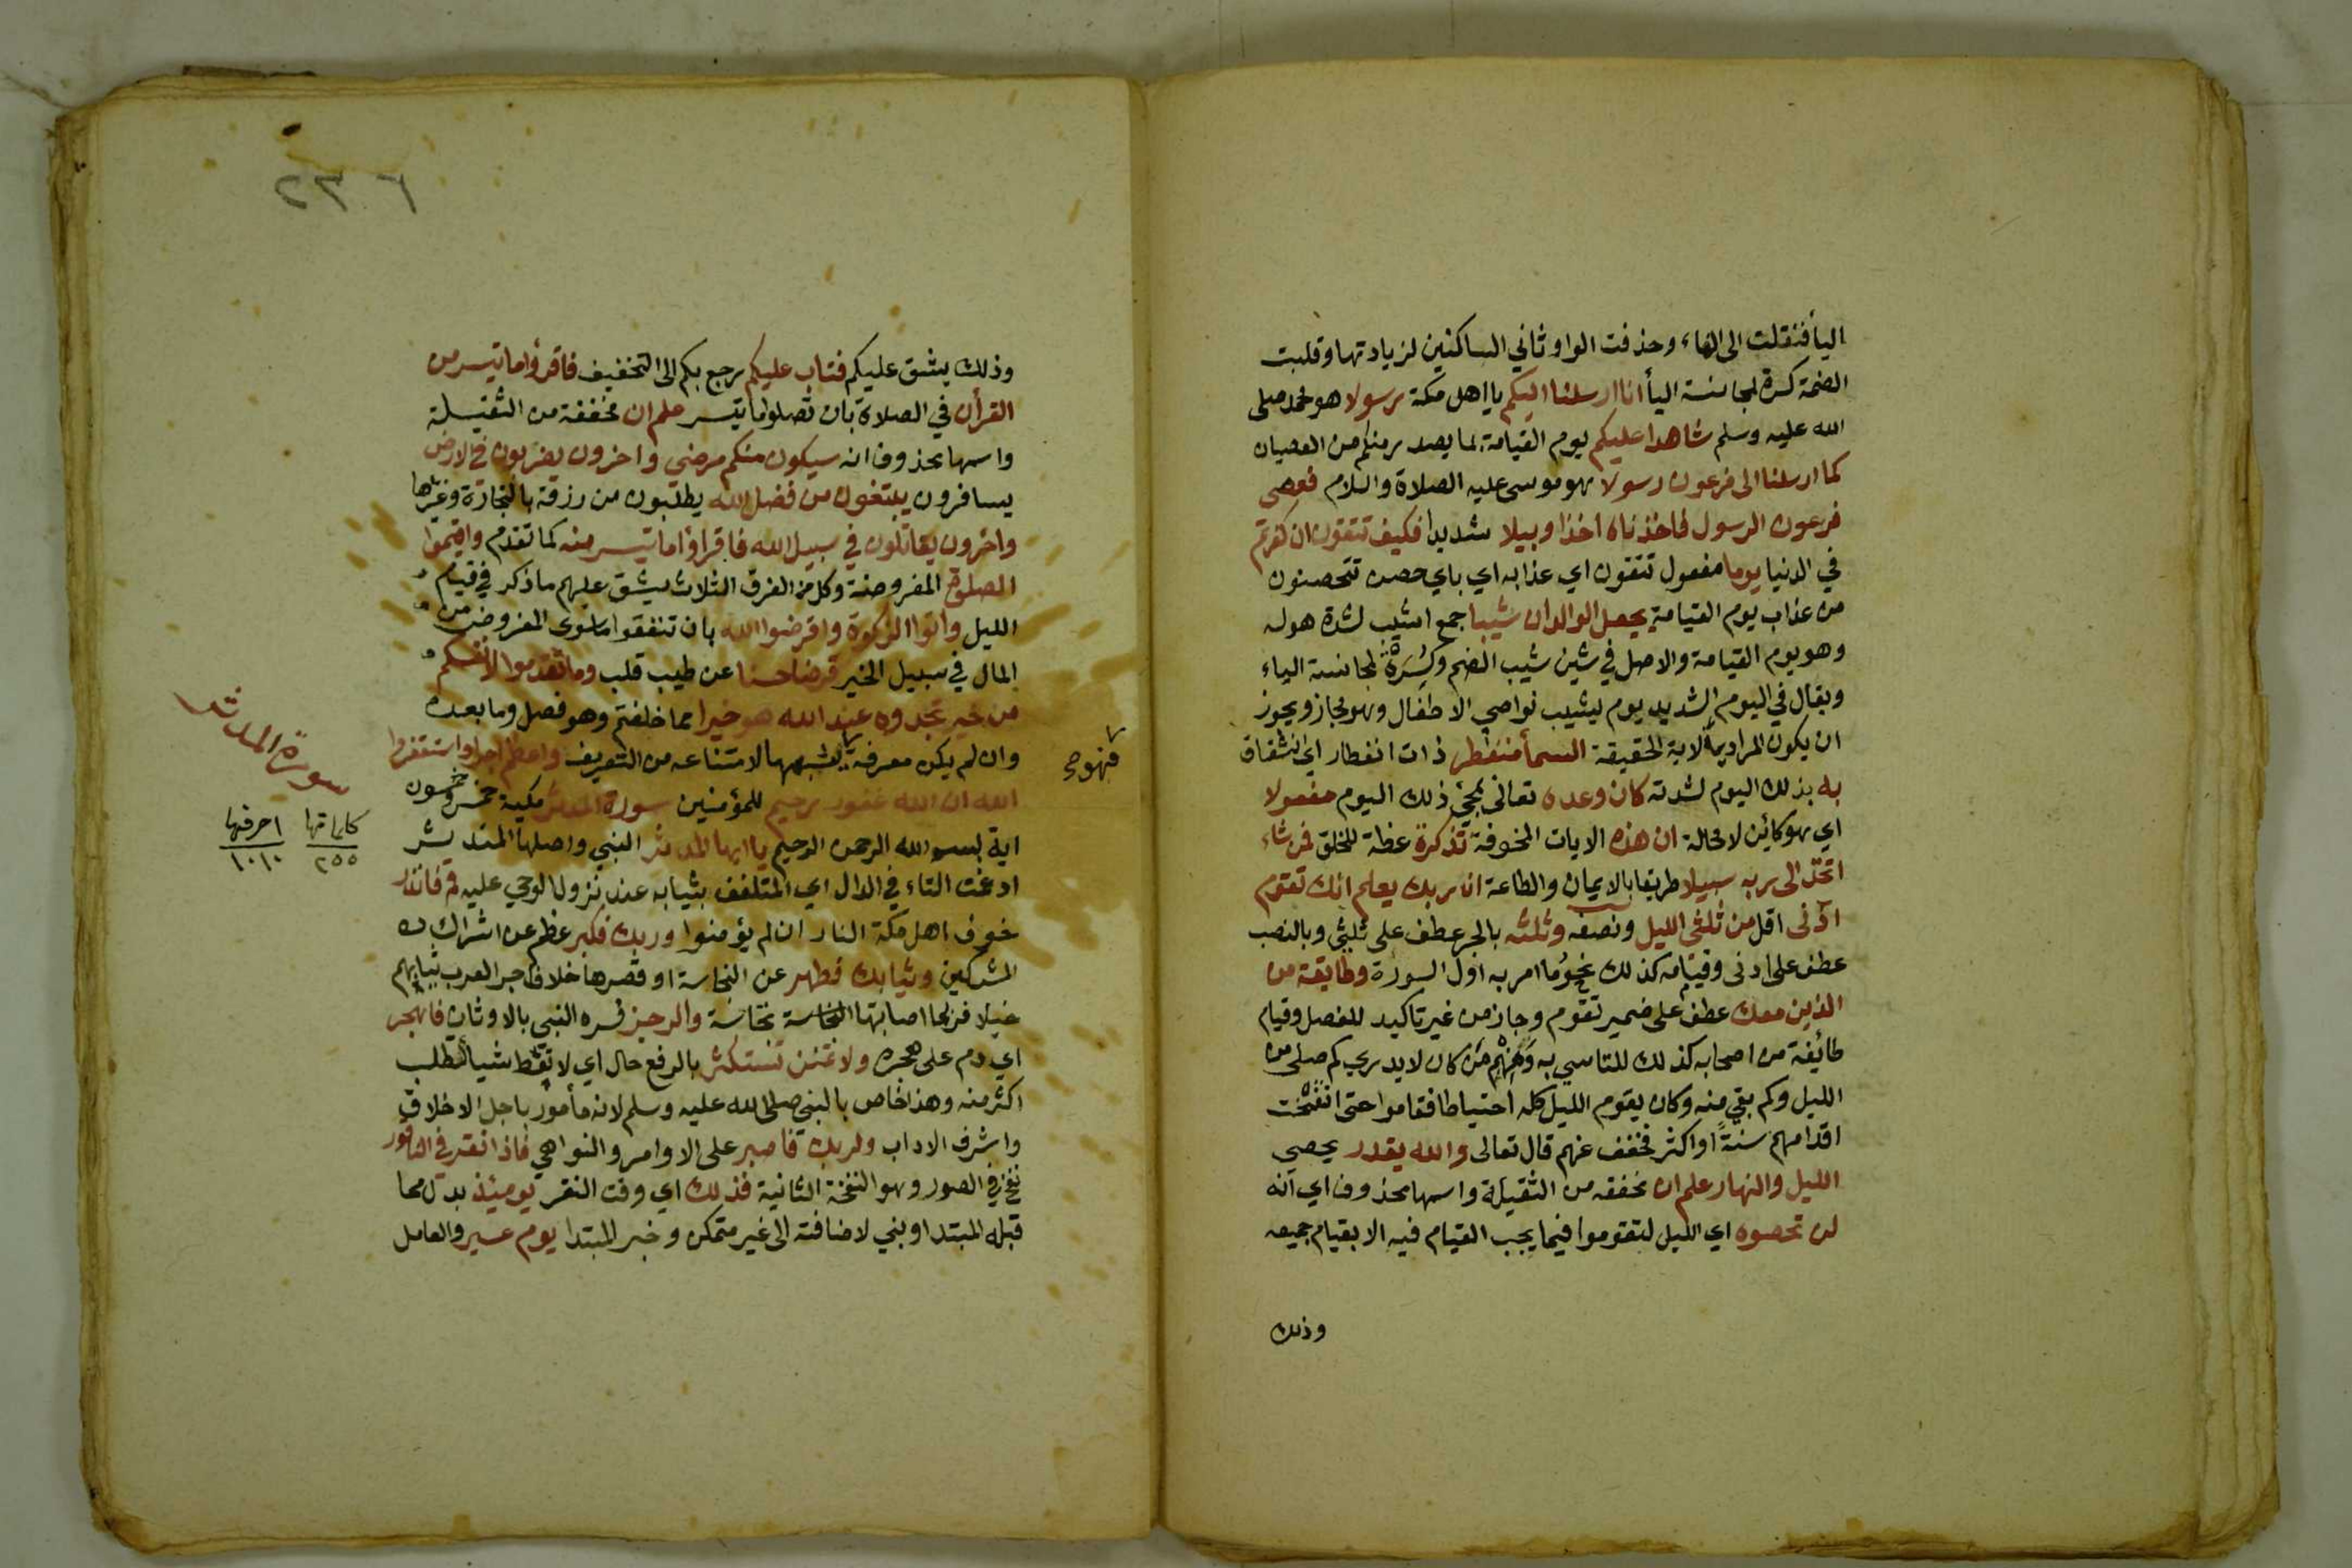 اليأ فنقلت الى الهاء وحذفت الواو ثاني الساكنين لزيادتها وقلبت
الضمة كسرة لمجانسة اليأ انا ارسلنا اليكم يا اهل مكة رسولا هو محمد صلى
الله عليه وسلم شاهدا عليكم يوم القيامة بما يصدر منكم من العصيان
كما ارسلنا الى فرعون رسولا وهو موسى عليه الصلاة والسلام فعصى
فرعون الرسول فاخذناه اخذا وبيلا شديدا فكيف تتقون ان كفرتم
في الدنيا يوما مفعول تتقون اي عذابه اي باي حصن تتحصنون
من عذاب يوم القيامة يجعل الوالدان شيبا جمع اشيب لشدة هوله
وهو يوم القيامة والاصل في شين شيب الضم وكسرة لمجانسة الياء
ويقال في اليوم الشديد يوم يشيب نواصي الاطفال وهو مجاز ويجوز
ان يكون المراد بالاية الحقيقة السمأ منفطر ذات انفطار اي انشقاق
به بذلك اليوم لشدته كان وعده تعالى بمجئ ذلك اليوم مفعولا
اي هو كائن لا محالة ان هذه الايات المخوفة تذكرة عظة للخلق فمن شاء
اتخذ الى ربه سبيلا طريقا بالايمان والطاعة ان ربك يعلم انك تقوم
ادنى اقل من ثلثى الليل ونصفه وثلثه بالجر عطف على ثلثي وبالنصب
عطف على ادنى وقيامه كذلك نحو ما امر به اول السورة وطايفة من
الذين معك عطف على ضمير تقوم وجاز من غير تاكيد للفصل وقيام
طائفة من اصحابه كذلك للتاسي به ومنهم من كان لا يدري كم صلى من
الليل وكم بقي منه وكان يقوم الليل كله احتياطا فقاموا حتى انتفخت
اقدامهم سنةً او اكثر فخفف عنهم قال تعالى والله يقدر يحصي
الليل والنهار علم ان مخففه من الثقيلة واسمها محذوف اي انه
لن تحصوه اي الليل لتقوموا فيما يجب القيام فيه الا بقيام جميعه
وذلك
٢٣٦
وذلك يشق عليكم فتاب عليكم رجع بكم الى التخفيف فاقرؤا ما تيسر من
القرأن في الصلاة بان تصلوا ما تيسر علم ان مخففة من الثقيلة
واسمها محذوف انه سيكون منكم مرضى واخرون يضربون في الارض
يسافرون يبتغون من فضل الله يطلبون من رزقه بالتجارة وغيرها
واخرون يقاتلون في سبيل الله فاقرؤا ما تيسر منه كما تقدم واقيموا
الصلوة المفروضة وكل من الفرق الثلاث يشق عليهم ما ذكر في قيام
الليل واتوا الزكوة واقرضوا الله بان تنفقوا ما سوى المفروض من
المال في سبيل الخير قرضا حسنا عن طيب قلب وما تقدموا لانفسكم
من خير تجدوه عند الله هو خيرا مما خلفتم وهو فصل وما بعده
وان لم يكن معرفة يشبهها لامتناعه من التعريف واعظم اجرا واستغفروا
فهوح
الله ان الله غفور رحيم للمؤمنين سورة المدثر مكية خمس وخمسون
سورة المدثر
كلماتها ٢٥٥
احرفها ١٠١٠
اية بسم الله الرحمن الرحيم يا ايها المدثر النبي واصلها المتدثر
ادغمت التاء في الدال اي المتلفف بثيابه عند نزول الوحي عليه قم فانذر
خوف اهل مكة النار ان لم يؤمنوا وربك فكبر عظم عن اشراك
المشركين وثيابك فطهر عن النجاسة او قصرها خلاف جر العرب ثيابهم
خيلا فربما اصابتها النجاسة نجاسة والرجز فسره النبي بالاوثان فاهجر
اي دم على هجره ولا تمنن تستكثر بالرفع حال اي لا تعط شيأ تطلب
اكثر منه وهذا خاص بالنبي صلى الله عليه وسلم لانه مأمور باجل الاخلاق
واشرف الاداب ولربك فاصبر على الاوامر والنواهي فاذا نقر في الناقور
نفخ في الصور وهو النفخة الثانية فذلك اي وقت النقر يومئذ بدل مما
قبله المبتدا وبني لاضافته الى غير متمكن وخبر المبتدا يوم عسير والعامل